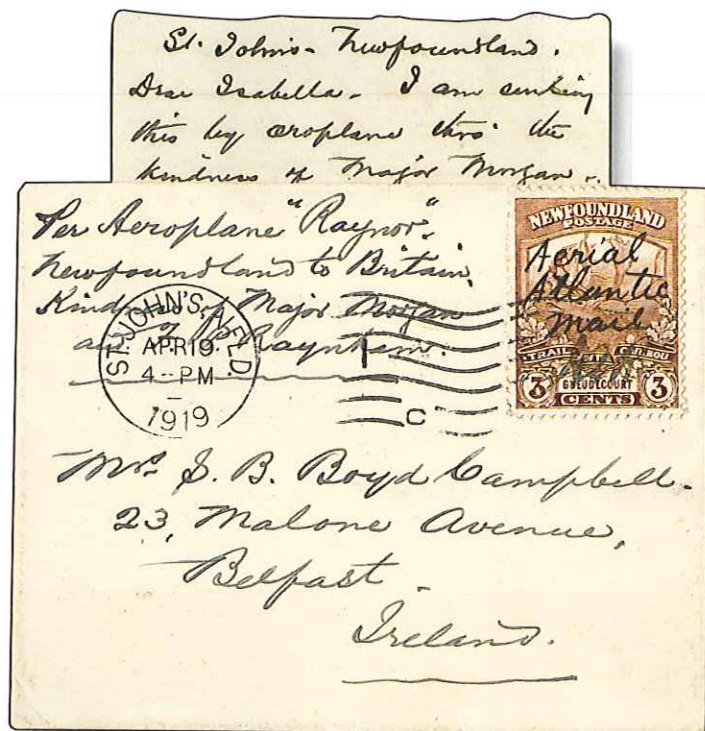 St. John's - Newfoundland.
Dear Isabella - I am sending
this by aeroplane thro' the
kindness of Major Morgan -
Per Aeroplane "Raynor".
Newfoundland to Britain.
Kindness of Major Morgan
and Raynham.
ST. JOHN'S, NFLD.
APR 19
4 - PM
1919
C
NEWFOUNDLAND
POSTAGE
Aerial
Atlantic
Mail
TRAIL OF THE CARIBOU
GUEUDECOURT
3 CENTS 3
Mrs. S. B. Boyd Campbell.
23, Malone Avenue,
Belfast.
Ireland.